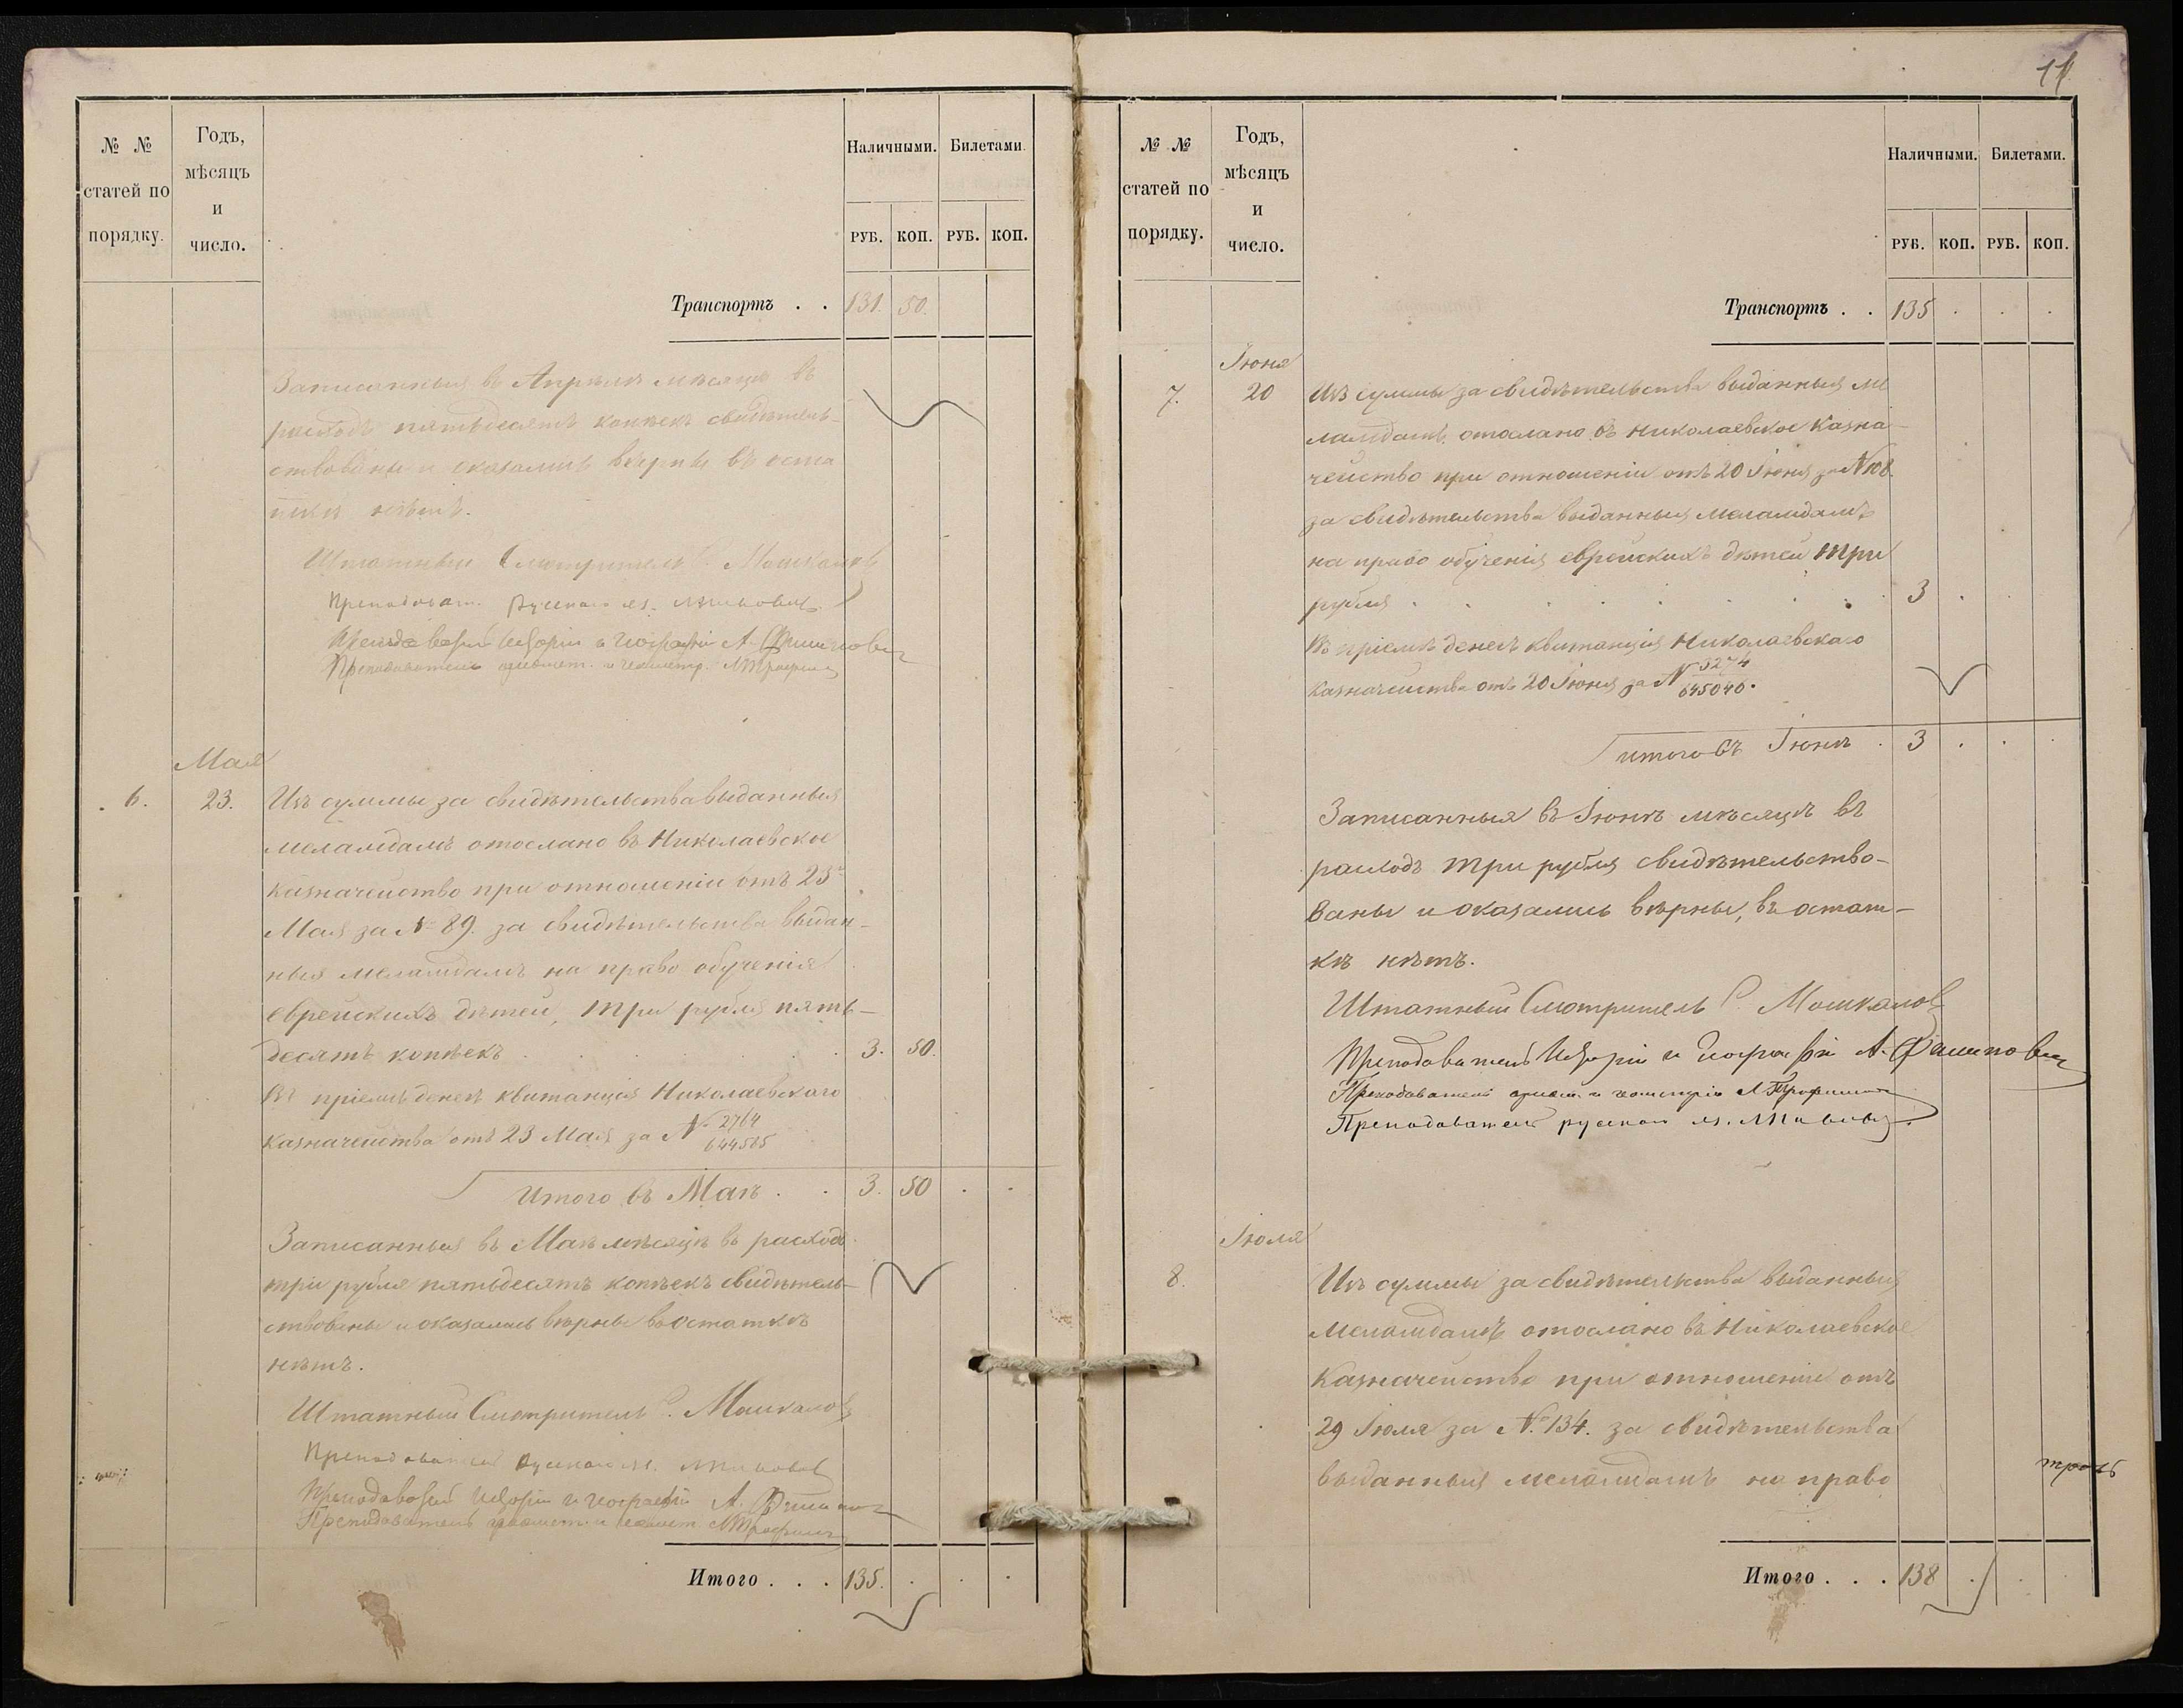 № №
статей по
порядку.
Годъ,
мѣсяцъ
и
число.
Наличными. Билетами.
РУБ. КОП. РУБ. КОП.
Транспортъ . . 131. 50.
Записанныя въ Апрѣлѣ мѣсяцѣ въ
расходъ пятьдесятъ копѣекъ свидѣтель-
ствованы и оказались вѣрны въ оста
ткѣ нѣтъ.
Штатный Смотритель Р. Мошкалов
Преподават. Русскаго яз.
Преподаватель Исторіи и Географіи А.
Преподаватель ариѳмет. и геометр.
Мая
6. 23. Изъ суммы за свидѣтельства выданныя
меламдамъ отослано въ Николаевское
казначейство при отношеніи отъ 23
Мая за № 89. за свидѣтельства выдан-
ныя меламдамъ на право обученія
еврейскихъ дѣтей, три рубля пять-
десятъ копѣекъ . . . 3. 50.
Въ пріемѣ денегъ квитанція Николаевскаго
казначейства отъ 23 Мая за № 2764
644565
Итого въ Маѣ . . 3. 50 . .
Записанныя въ Маѣ мѣсяцѣ въ расходъ
три рубля пятьдесятъ копѣекъ свидѣтель-
ствованы и оказались вѣрны въ остаткѣ
нѣтъ.
Штатный Смотритель Р. Мошкалов
Преподаватель Русскаго яз.
Преподаватель Исторіи и Географіи А.
Преподаватель ариѳмет. и геомет.
Итого . . . 135. . . .
11
№ №
статей по
порядку.
Годъ,
мѣсяцъ
и
число.
Наличными. Билетами.
РУБ. КОП. РУБ. КОП.
Транспортъ . . 135 . . .
Іюня
7. 20 Изъ суммы за свидѣтельства выданныя ме
ламдамъ отослано въ Николаевское Казна-
чейство при отношеніи отъ 20 Іюня за № 108.
за свидѣтельства выданныя меламдамъ
на право обученія еврейскихъ дѣтей три
рубля . . . . . . . 3 . .
Въ пріемѣ денегъ квитанція Николаевскаго
Казначейства отъ 20 Іюня за № 3274
645040.
итого въ Іюнѣ . 3 . . .
Записанныя въ Іюнѣ мѣсяцѣ въ
расходъ три рубля свидѣтельство-
ваны и оказались вѣрны, въ остат-
кѣ нѣтъ.
Штатный Смотритель Р. Мошкалов
Преподаватель Исторіи и Географіи А.
Преподаватель ариѳм. и геометріи
Преподаватель русскаго яз.
Іюля
8. Изъ суммы за свидѣтельства выданныя
Меламдамъ отослано въ Николаевское
Казначейство при отношеніи отъ
29 Іюля за №. 134. за свидѣтельства
выданныя меламдамъ на право
Итого . . . 138 . . .